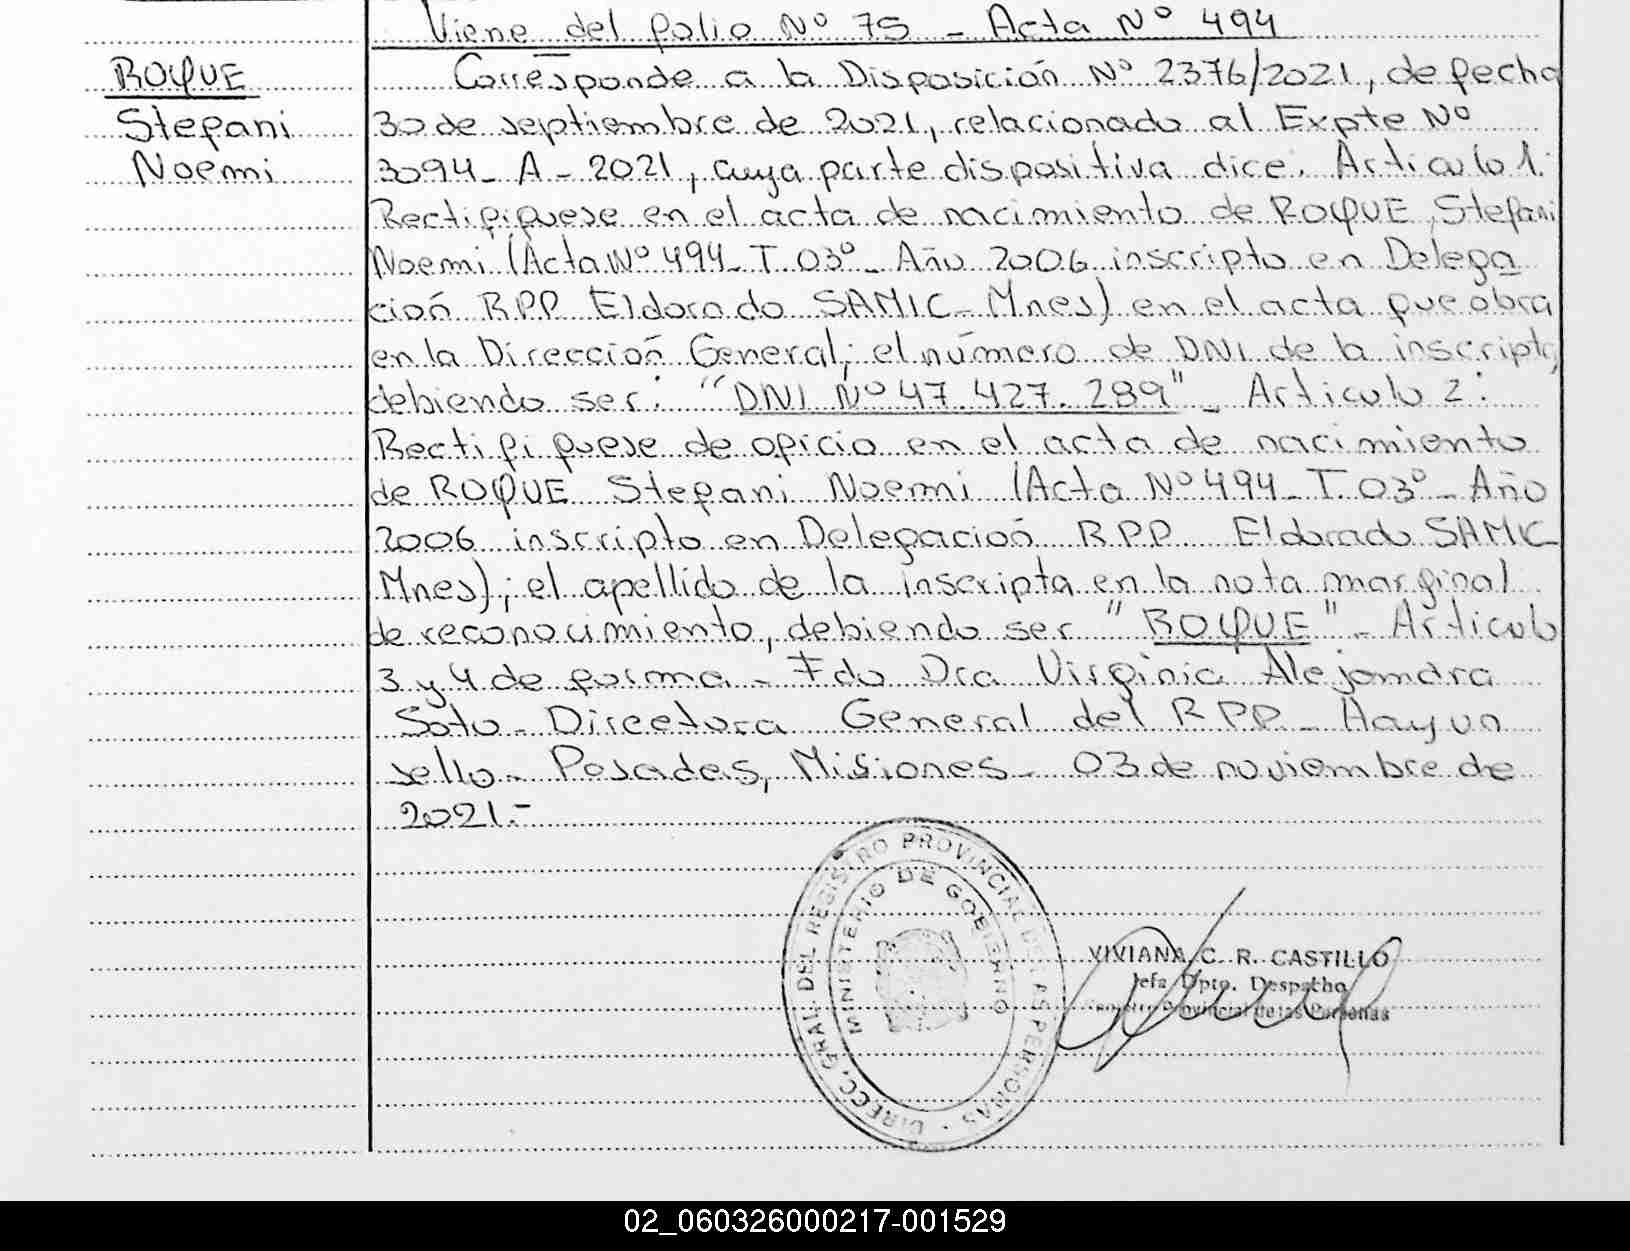 Viene del folio Nº 75 - Acta Nº 494
ROQUE
Stefani
Noemi
Corresponde a la Disposición Nº 2376/2021, de fecha
30 de septiembre de 2021, relacionado al Expte Nº
3094- A - 2021, cuya parte dispositiva dice. Articulo 1:
Rectifiquese en el acta de nacimiento de ROQUE, Stefani
Noemi (Acta Nº 494- T. 03º - Año 2006 inscripto en Delega
ción RPP Eldorado SAMIC- Mnes) en el acta que obra
en la Dirección General; el número de DNI de la inscripta,
debiendo ser: "DNI Nº 47.427.289" - Articulo 2:
Rectifiquese de oficio en el acta de nacimiento
de ROQUE Stefani Noemi (Acta Nº 494- T. 03º - Año
2006 inscripto en Delegación RPP Eldorado SAMIC
Mnes); el apellido de la inscripta en la nota marginal
de reconocimiento, debiendo ser "ROQUE" - Articulo
3 y 4 de forma - Fdo Dra Virginia Alejandra
Soto - Directora General del RPP - Hay un
sello - Posadas, Misiones - 03 de noviembre de
2021.-
DIRECC. GRAL. DEL REGISTRO PROVINCIAL DE LAS PERSONAS
MINISTERIO DE GOBIERNO
VIVIANA C. R. CASTILLO
Jefa Dpto. Despacho
Provincial de las Personas
02_060326000217-001529